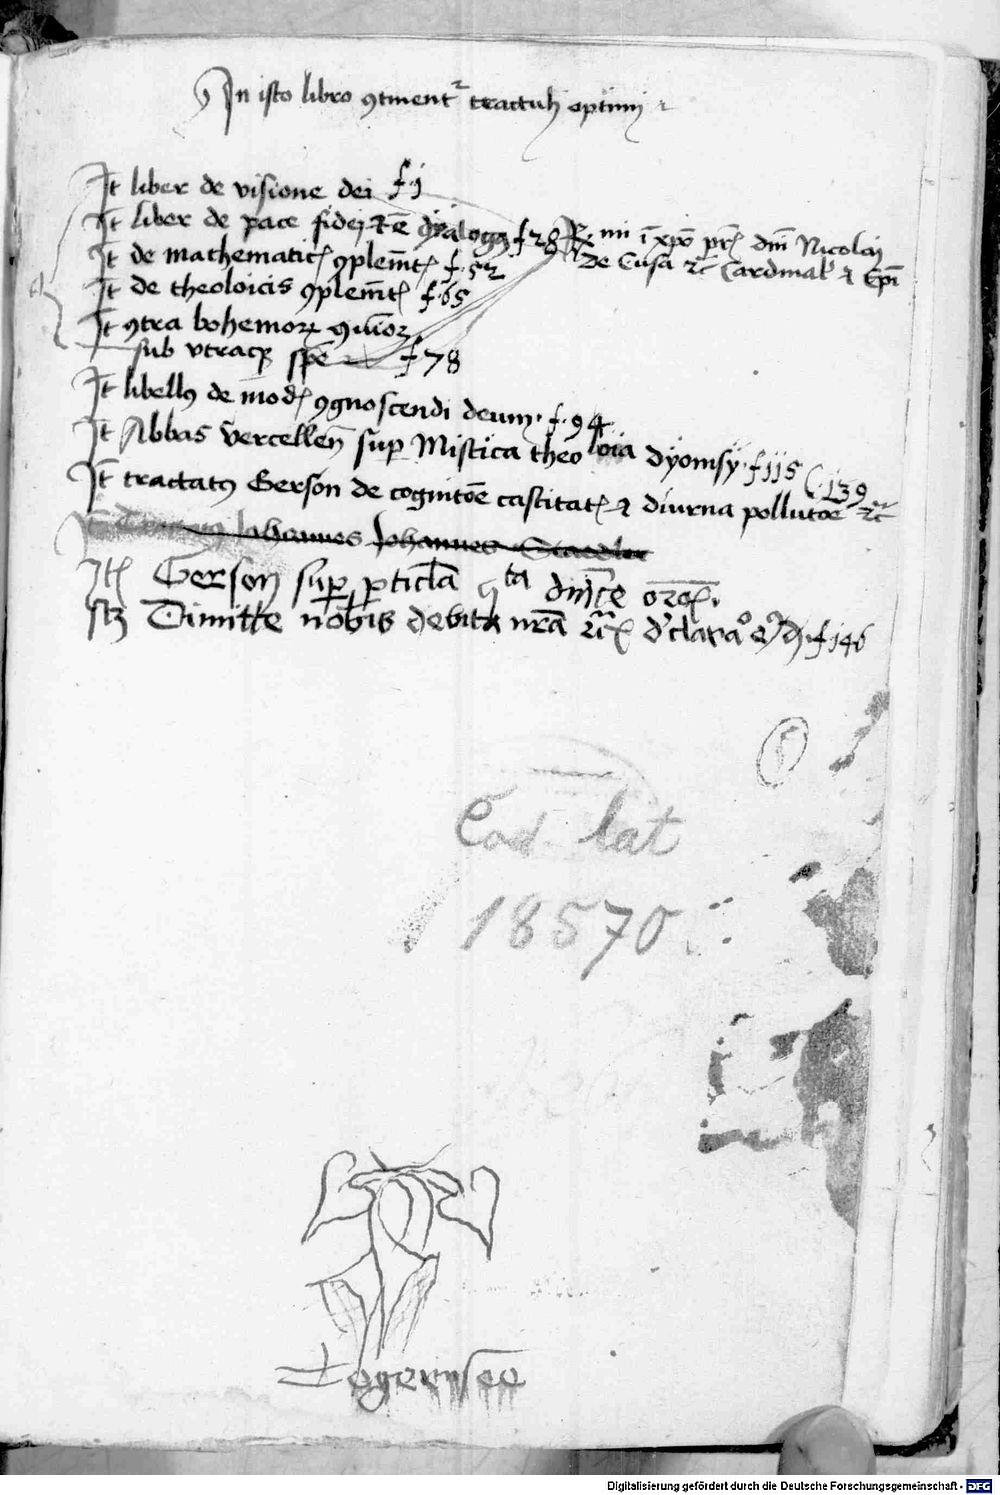 In isto libro ꝯtinentᷣ tractatꝰ optimi
It̄ liber de visione dei f·1
It̄ liber de pace fidei et ē dyalogꝰ f 28 R̄mi ī xp̄o pr̄is dn̄i Nicolai
de Cusa ꝛc̄ Cardinal̓ ⁊ Ep̄i
It̄ de mathematicꝭ ꝯplem̄tꝭ f·52
It̄ de theoloicis ꝯplem̄tꝭ f·65
It̄ ꝯtra bohemorꝝ
sub vtraqꝫ spē f 78
It̄ libellꝰ de modꝭ ꝯgnoscendi deum· f·94
It̄ Abbas vercellen̄ sup̱ Mistica theoloia dyonisy· f 115
It̄ tractatꝰ Gerson de cognitōe castitatꝭ ⁊ diurna pollutōe ꝛc̄ 139
Johannes Johannes
Itꝭ Gerson sup̱ p̱ticl̄a qͥta dn̄ice orōꝭ·
scꝫ Dimitte nobis debita nr̄a ꝛc̄ f 146
Cod lat
18570
Tegernsee
Digitalisierung gefördert durch die Deutsche Forschungsgemeinschaft - DFG